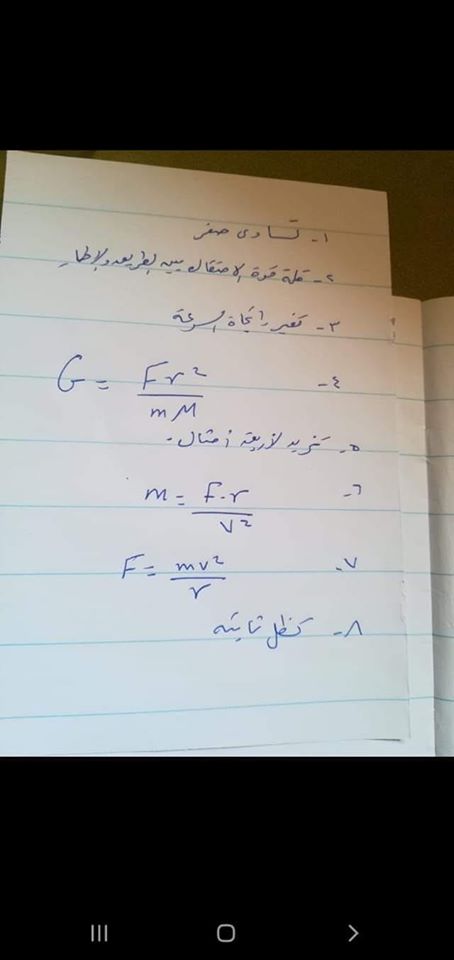 ١- تساوى صفر
٢- قلة قوة الاحتكاك بين الطريق والإطار
٣- تغير اتجاه السرعة
٤- G = Fr² / mM
٥- تزيد لأربعة أمثال.
٦- m = F.r / v²
٧- F = mv² / r
٨- تظل ثابته